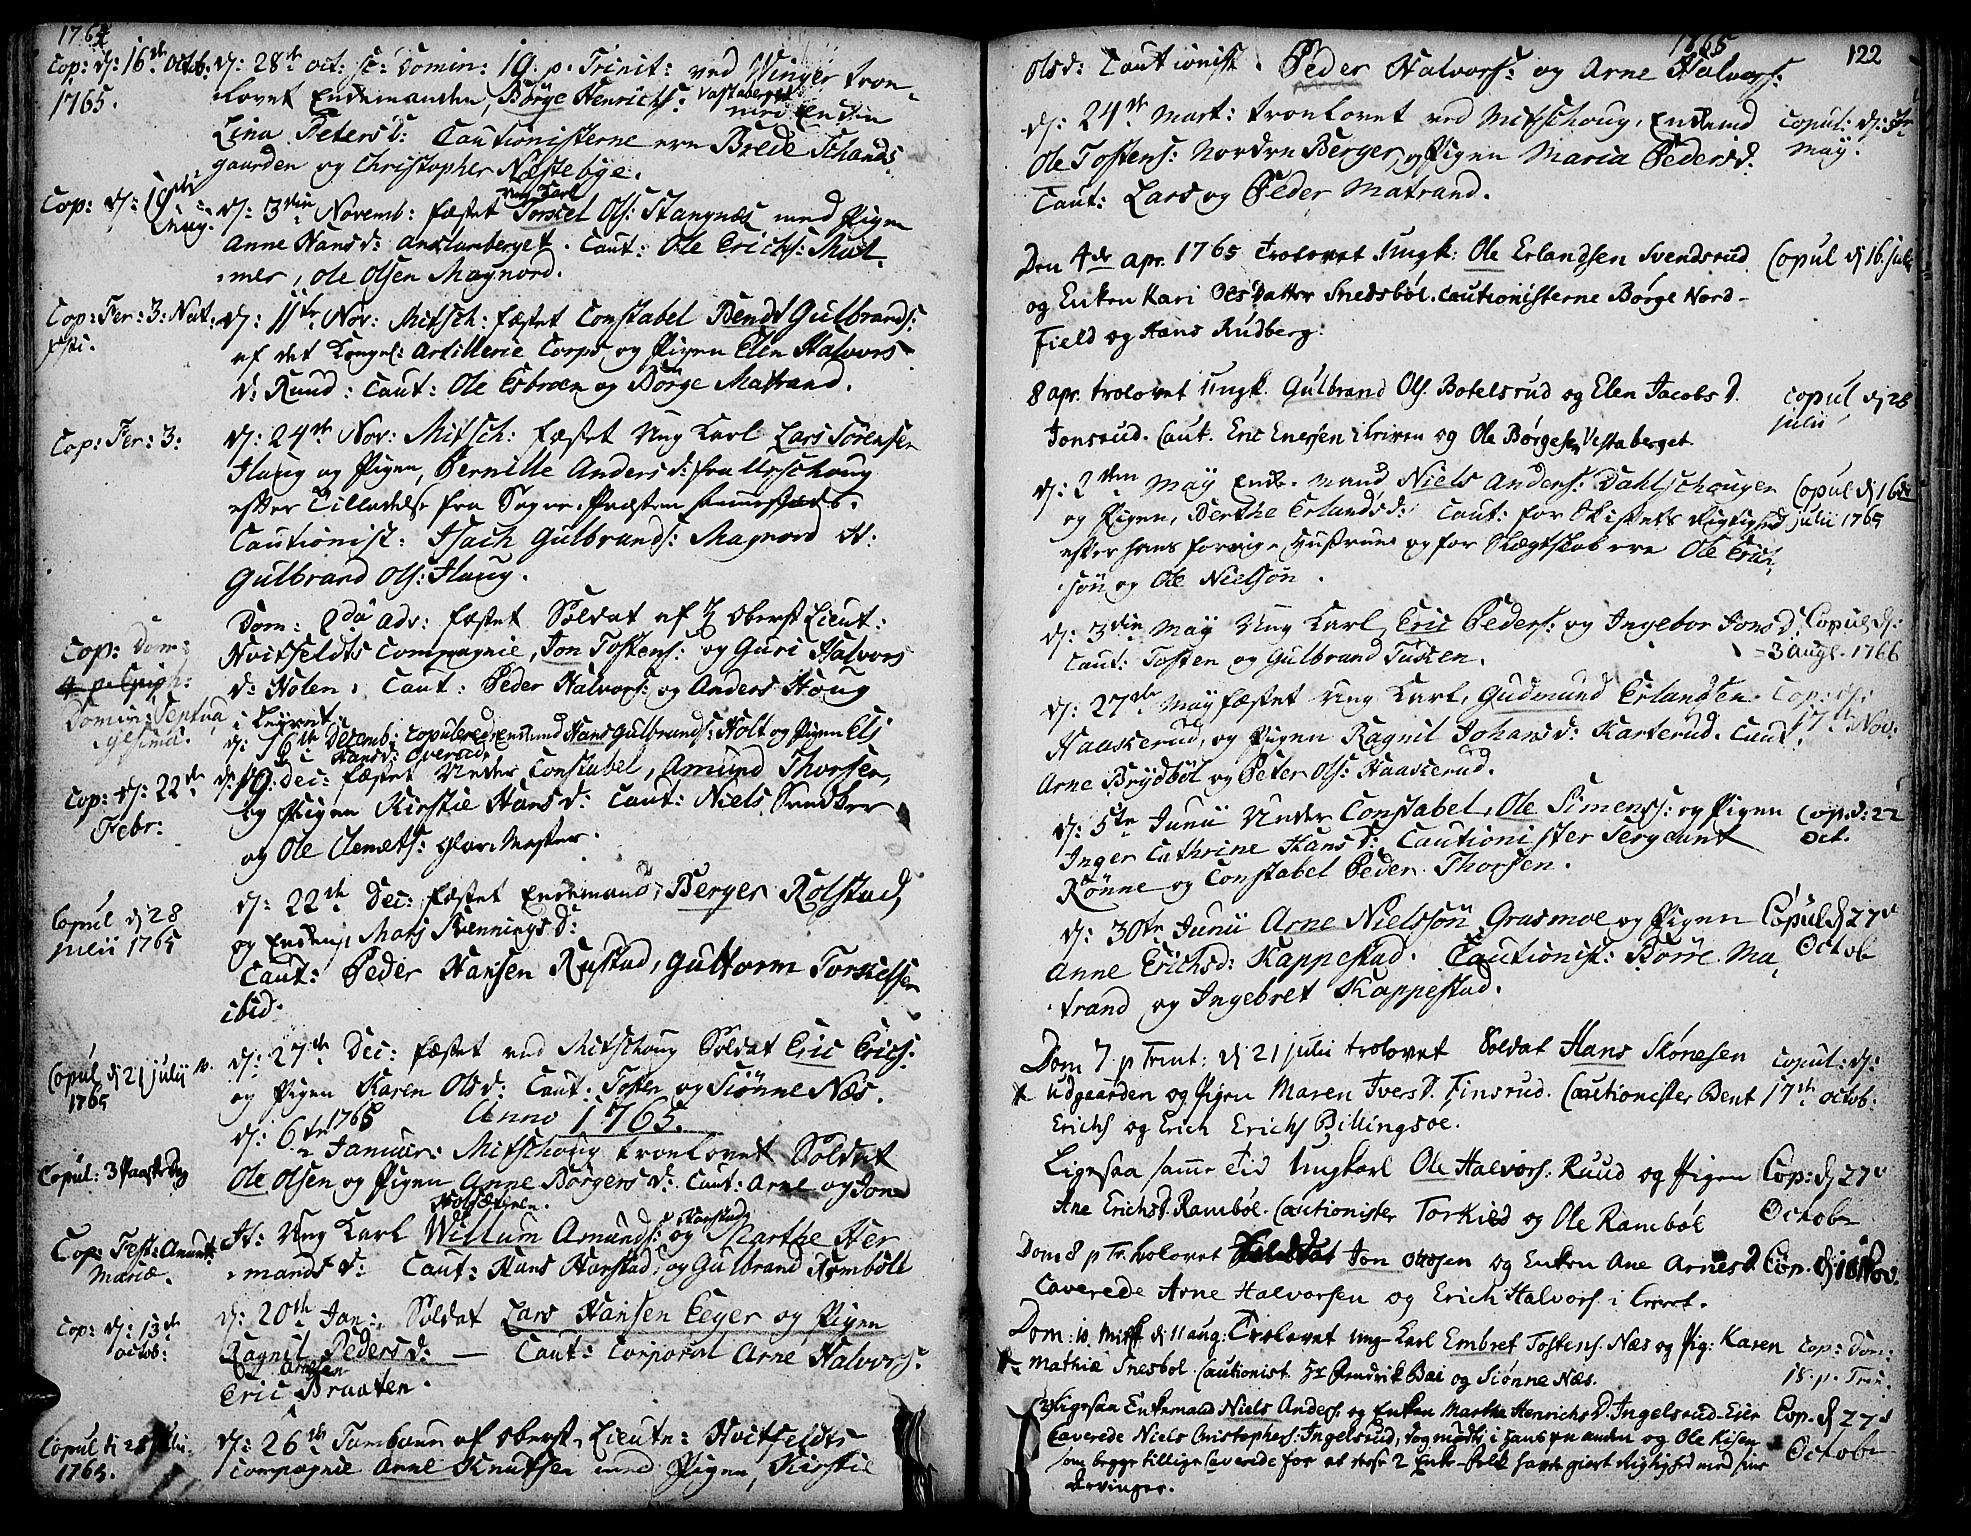 1764
Cop: d: 16de Octob:
1765.
d: 28de oct: sc: Domin: 19. p. Trinit: ved Winger troe-
lovet Enkemanden, Børge Henrichs: Vestaberget
med Enken
Lina Peters d: Cautionisterne ere Brede Schands
gaarden og Christopher Næstebye.
Cop: d: 19de
Aug.
Ung Karl
d: 3die Novemb: fæstet Torkel Ols: Stangnæs med Pigen
Anne Hansd: Caut: Ole Erichs: Mat-
mer, Ole Olsen Magnord.
Cop: Fer: 3: Nat:
Xsti.
d: 11te Nov: Mitsch: fæstet Constabel Bendt Gulbrands:
af det Kongel: Artillerie Corps og Pigen Elen Halvors
d: Ruud: Caut: Ole Esbroen og Børge Matrand.
Cop: Fer: 3:
d: 24de Nov: Mitsch: fæstet Ung Karl Lars Sørensen
Haug og Pigen, Pernille Anders d: fra Ulschoug
efter Tilladelse fra Sogne-Præsten
Cautionist: Isach Gulbrands: Magnord It:
Gulbrand Ols: Haug.
Cop: Dom:
4 p. Epiph:
Domin: Septua
gesima.
Dom: 2da Adv: fæstet Soldat af H Oberst Lieut:
Hvitfeldts Compagnie, Jon Tostens: og Guri Halvors
d: Holen. Caut: Peder Halvors: og Anders Houg
i Leiret.
d: 16de Decemb: copulered Enkemand Hans Gulbrands: Holt og Pigen Els
Hansd: Overud
Cop: d: 22de
Febr:
d: 19: Dec: fæstet Under Constabel, Amund Thorsen,
og Pigen Kirstie Hans d: Caut: Niels Snedker
og Ole Clemets: Glar-Mester.
Copul d 28
Julii 1765
d: 22de Dec: fæstet Enkemand, Berger Rolstad,
og Enken, Marj Hennings d:
Caut: Peder Hansen Rustad, Guttorm Torkelsen
ibid.
Copul d 21 Julii
1765
d: 27de Dec: fæstet ved Mitschoug Soldat Eric Erics:
og Pigen Karen Ols d: Caut: Tosten og Siønne Næs.
Anno 1765.
Copul: 3 Paaskedag
d: 6te 1765
Januar: Mitschoug troelovet Soldat
Ole Olsen og Pigen Anne Børgers d: Caut: Arne og Jone
Cop: Fest: Anunt:
Mariæ.
It: Ung Karl Willum Amunds: og Marthe Her
mands d: Caut: Hans Harstad, og Gulbrand Rømbøll
Cop: d: 13de
octob:
d: 20de Jan: Soldat Lars Hansen Eeger og Pigen
Ragnil Peders d: — Caut: Corporal Arne Halvors:
Arnesen
Eric Braaten.
Copul d 28 Julii
1765.
d: 26de Tambour af Oberst-Lieutn: Hvitfeldts
Compagnie Arne Knutsen med Pigen, Kirstie
1765
122
Olsd: Cautionist. Peder Halvors: og Arne Halvors:
d: 24de Mart: troelovet ved Mitschoug, Enkemd
Ole Tostens: Nordre Berger, og Pigen Maria Pedersd:
Caut: Lars og Peder Matrand.
Copul: d:
May.
Den 4de apr. 1765 trolovet Ungk: Ole Erlandsen Svendsrud
og Enken Kari Olsdatter Snedsbøl. Cautionisterne Børge Nord-
field og Hans Rudberg.
Copul d 16. Julii
8 apr. trolovet Ungk. Gulbrand Ols. Botelsrud og Elen Jacobs D.
Jonsrud. Caut. Eric Enersen i Leiren og Ole Børgesen Vestaberget.
copul d 28
julii
d: 2den May Enke-mand Niels Anders: Dahlschougen
og Pigen, Berthe Erlands d: Caut: for Skiftets Rigtighed
efter hans forrige Hustrue og for Slægtskab ere Ole Eric
søn og Ole Nielsøn.
Copul d 16de
Julii 1765
d: 3die May Ung Karl, Eric Peders: og Ingebor Jons d:
Caut: Tosten og Gulbrand Tusken.
Copul d:
3 Aug. 1766
d: 27de May fæstet Ung Karl, Gudmund Erlandsen
Haaskerud, og Pigen Ragnil Johansd: Karterud. Caut:
Arne Brydbøl og Peter Ols: Haaskerud.
Cop: d:
17de Nov:
d: 5te Junii Under Constabel, Ole Simens: og Pigen
Inger Cathrine Hans d: Cautionister Sergeant
Rønne og Constabel Peder Thorsen.
Cop: d: 22
Oct.
d: 30te Junii Arne Nielssøn Grasmoe og Pigen
Anne Erichsd: Kappestad. Cautionist: Børre Ma-
trand og Ingebret Kappestad.
Copul d 27de
Octob
Dom 7. p Trinit: d 21 julii trolovet Soldat Hans Skønesen
Udgaarden og Pigen Maren Ivers D. Finsrud. Cautionister Bent
Erichs og Erich Erichs Billingsoe.
Copul: d:
17de octob:
Ligesaa samme Tid Ungkarl Ole Halvors. Ruud og Pigen
Ane Erichs D. Rambøl. Cautionister Torkild og Ole Rambøl
Cop: d 27de
Octobr
Dom 8 p Tr. trolovet Jon Olosen og Enken Ane Arnes D.
Caverede Arne Halvorsen og Erich Halvors. i Leiret.
Cop. d 18 Nov.
Dom: 10 Mitsk d 11 aug: Trolovet ung-Karl Embret Tostens. Næs og Pig: Karen
Mathiæ Snesbøl. Cautionist. Hr Hendrik Bai og Siønne Næs.
Cop: Dom:
18. p. Trin:
Ligesaa Enkemand Niels Anders. og Enken Martha Henrichs D. Ingelsrud-Eier
Caverede Niels Christophers. Ingelsrud, og Ole Kisen
som begge tillige Caverede for at disse 2 Enke-folk havde giort Rigtighed med sine
Arvinger.
Cop. d 27de
Octobr